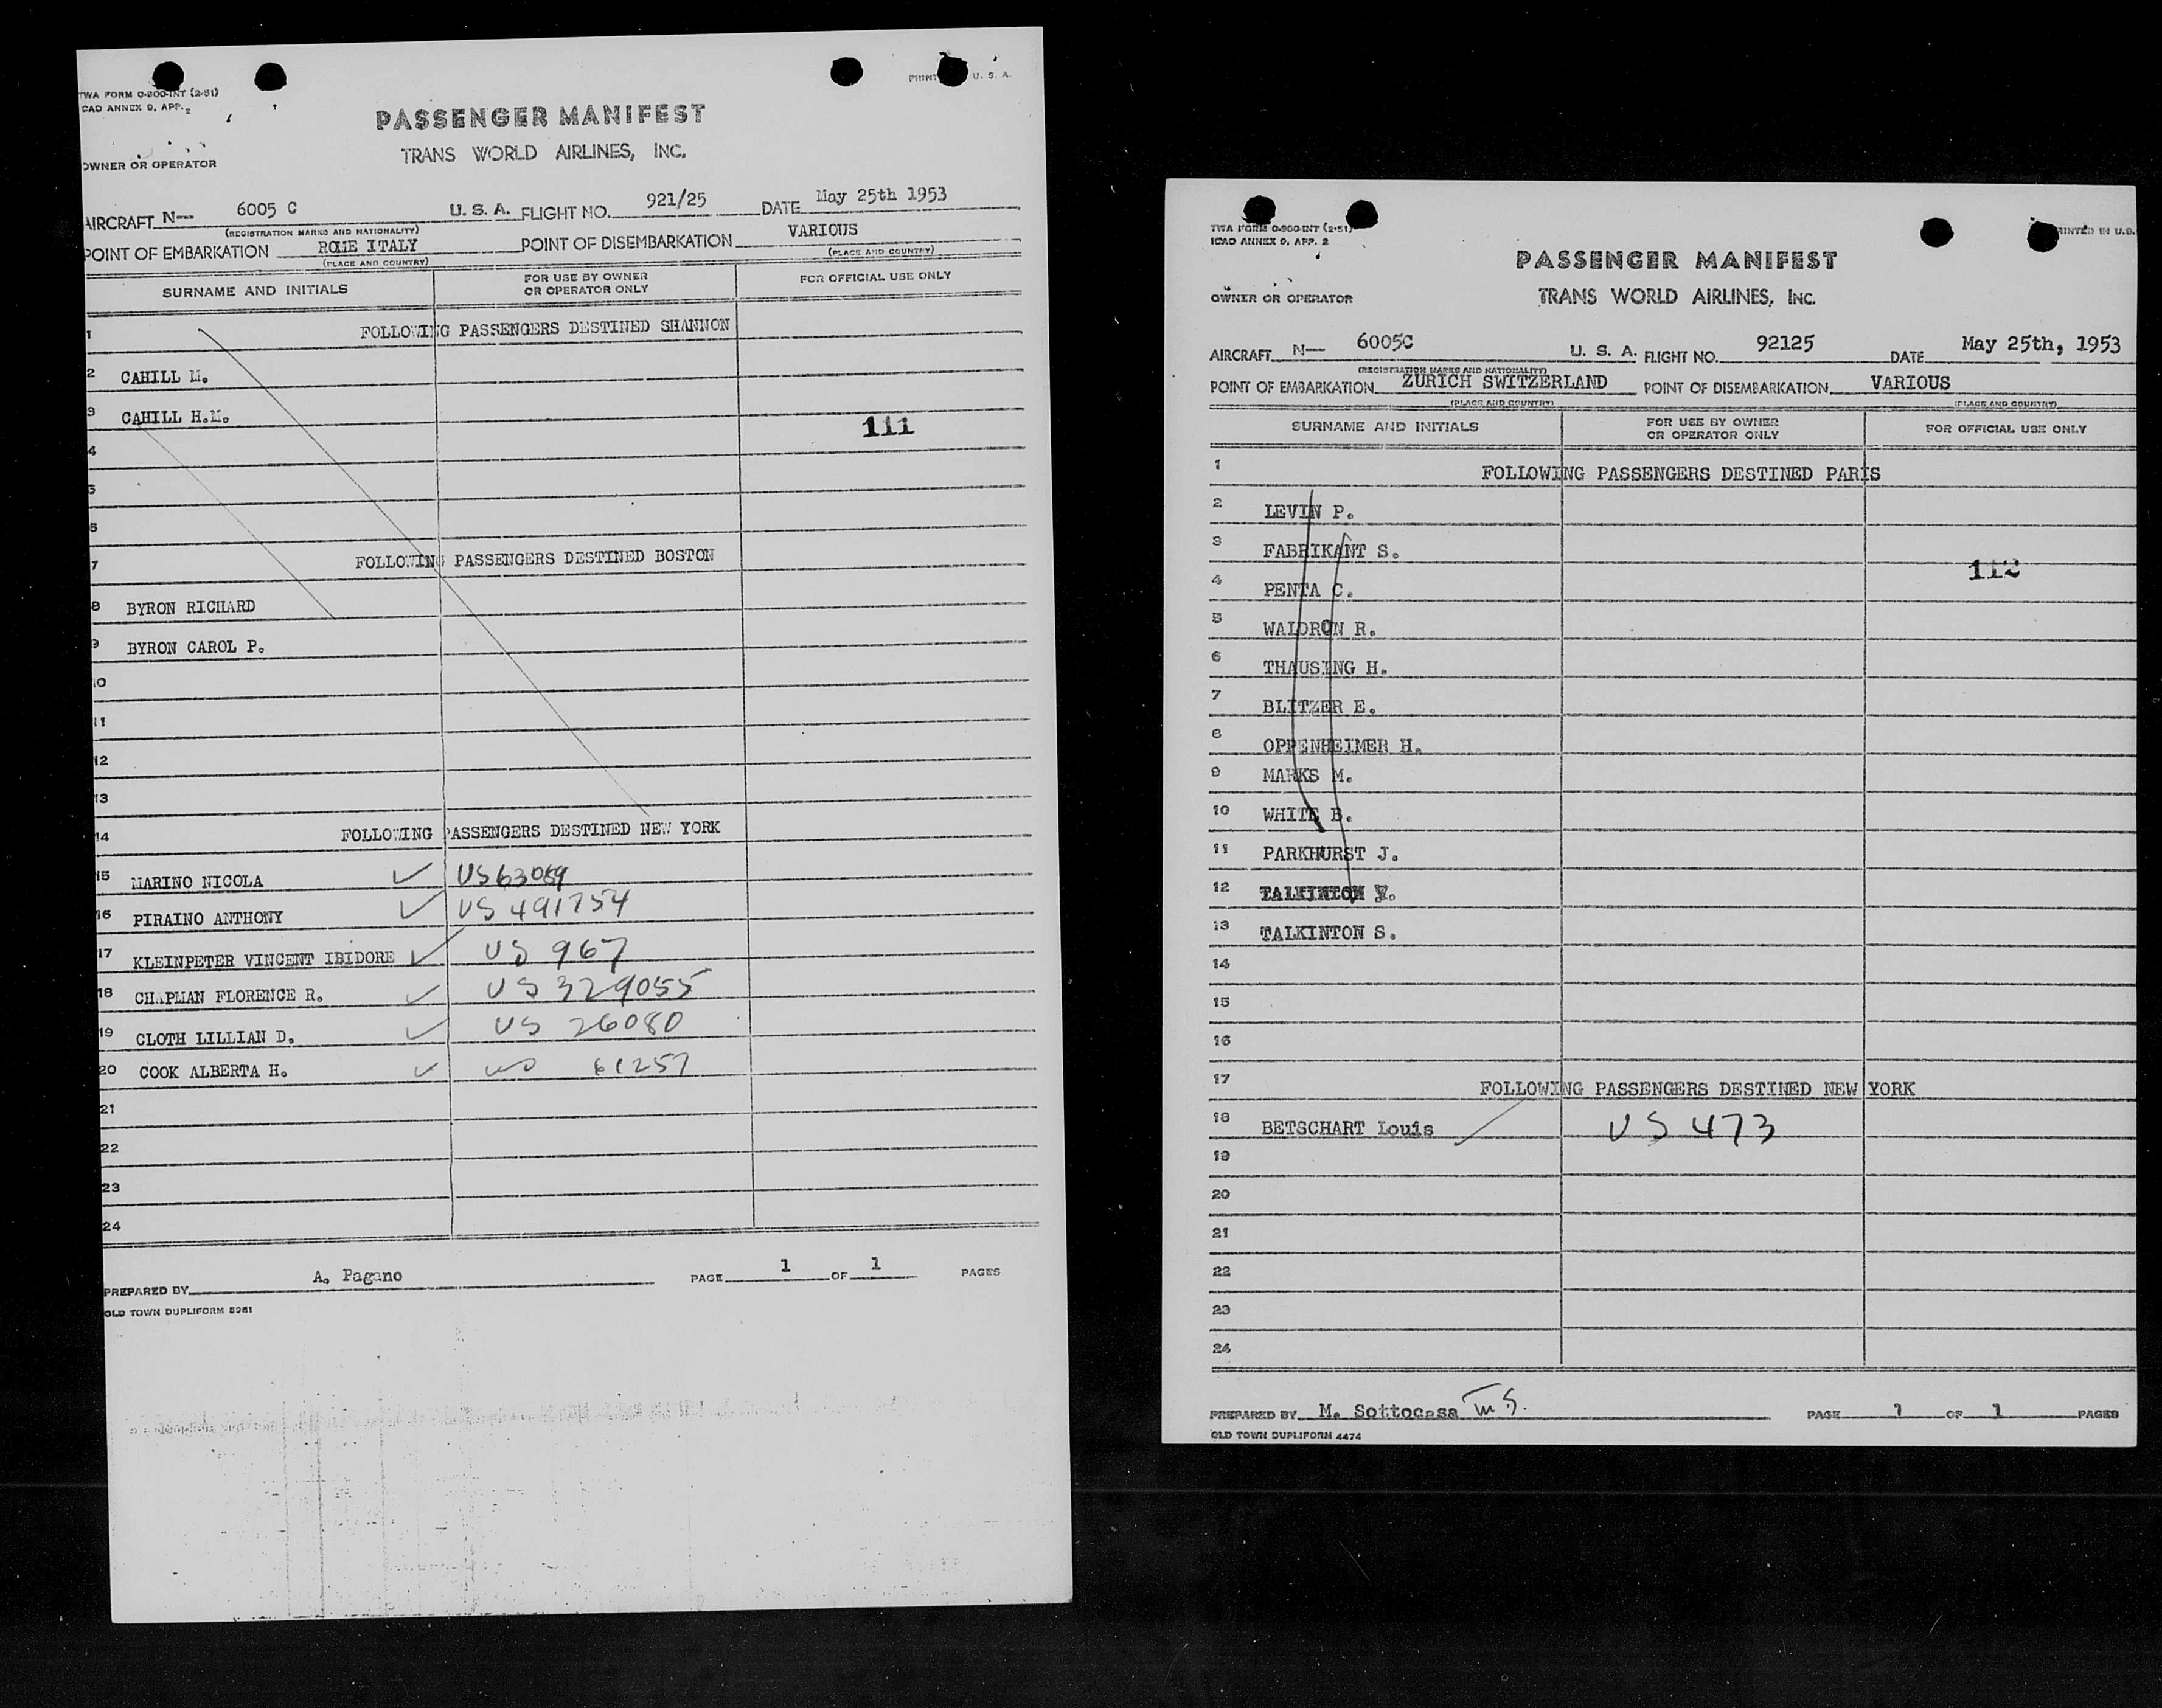 TWA FORM O-800-INT (2-51)
ICAO ANNEX 9, APP. 2
U. S. A.
PASSENGER MANIFEST
TRANS WORLD AIRLINES, INC.
OWNER OR OPERATOR
AIRCRAFT N— 6005 C U. S. A. FLIGHT NO. 921/25 DATE May 25th 1953
(REGISTRATION MARKS AND NATIONALITY)
POINT OF EMBARKATION ROME ITALY POINT OF DISEMBARKATION VARIOUS
(PLACE AND COUNTRY) (PLACE AND COUNTRY)
SURNAME AND INITIALS FOR USE BY OWNER OR OPERATOR ONLY FOR OFFICIAL USE ONLY
1 FOLLOWING PASSENGERS DESTINED SHANNON
2 CAHILL M.
3 CAHILL H.M.
111
4
5
6
7 FOLLOWING PASSENGERS DESTINED BOSTON
8 BYRON RICHARD
9 BYRON CAROL P.
10
11
12
13
14 FOLLOWING PASSENGERS DESTINED NEW YORK
15 MARINO NICOLA ✓ US 63089
16 PIRAINO ANTHONY ✓ US 491754
17 KLEINPETER VINCENT IBIDORE ✓ US 967
18 CHAPMAN FLORENCE R. ✓ US 329055
19 CLOTH LILLIAN D. ✓ US 26080
20 COOK ALBERTA H. ✓ US 61257
21
22
23
24
PREPARED BY A. Pagano PAGE 1 OF 1 PAGES
OLD TOWN DUPLIFORM 5981
TWA FORM O-800-INT (2-51)
ICAO ANNEX 9, APP. 2
PRINTED IN U.S.
PASSENGER MANIFEST
TRANS WORLD AIRLINES, INC.
OWNER OR OPERATOR
AIRCRAFT N— 6005C U. S. A. FLIGHT NO. 92125 DATE May 25th, 1953
(REGISTRATION MARKS AND NATIONALITY)
POINT OF EMBARKATION ZURICH SWITZERLAND POINT OF DISEMBARKATION VARIOUS
(PLACE AND COUNTRY) (PLACE AND COUNTRY)
SURNAME AND INITIALS FOR USE BY OWNER OR OPERATOR ONLY FOR OFFICIAL USE ONLY
1 FOLLOWING PASSENGERS DESTINED PARIS
2 LEVIN P.
3 FABRIKANT S.
112
4 PENTA C.
5 WALDRON R.
6 THAUSING H.
7 BLITZER E.
8 OPPENHEIMER H.
9 MARKS M.
10 WHITE B.
11 PARKHURST J.
12 TALKINTON
13 TALKINTON S.
14
15
16
17 FOLLOWING PASSENGERS DESTINED NEW YORK
18 BETSCHART Louis US 473
19
20
21
22
23
24
PREPARED BY M. Sottocasa M S. PAGE 1 OF 1 PAGES
OLD TOWN DUPLIFORM 4474